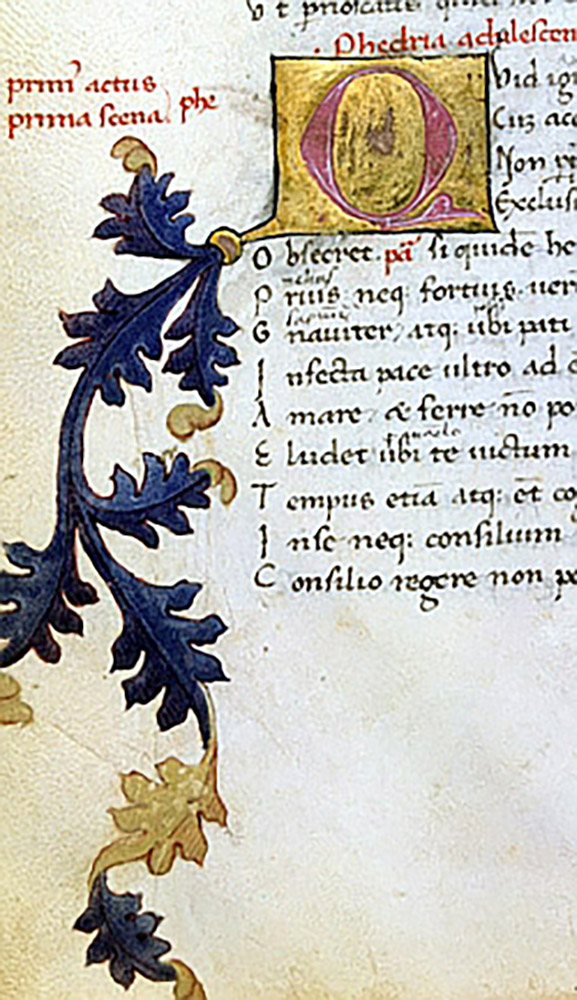 v t
· Phedria adulescen
primꝰ actus
prima scena. phe
Q
Vid ig
Cuꝫ acc
Non
Exclusi
O bsecret pã si quidẽ he
P rius neq; fortius uer
G nauiter, atq; ubi pati
I nfecta pace ultro ad e
A mare & ferre nõ po
E ludet ubi te uictum
T empus etiã atq: et co
I nse neq: consilium
C onsilio regere non po